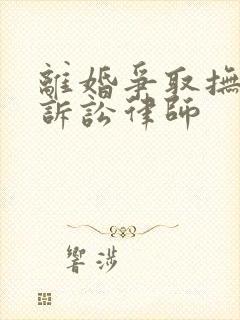 離婚爭取撫
訴訟律師
響涉